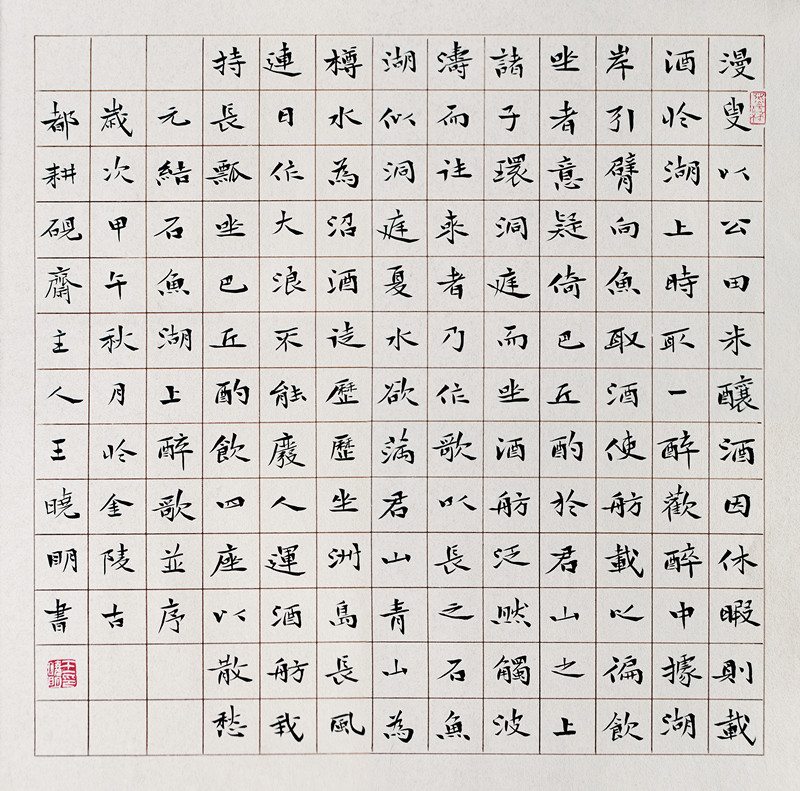 漫叟以公田米釀酒因休暇則載
酒於湖上時取一醉歡醉中據湖
岸引臂向魚取酒使舫載以徧飲
坐者意疑倚巴丘酌於君山之上
諸子環洞庭而坐酒舫泛然觸波
濤而往來者乃作歌以長之石魚
湖似洞庭夏水欲滿君山青山為
樽水為沼酒徒歷歷坐洲島長風
連日作大浪不能廢人運酒舫我
持長瓢坐巴丘酌飲四座以散愁
元結石魚湖上醉歌並序
歲次甲午秋月於金陵古
都耕硯齋主人王曉明書